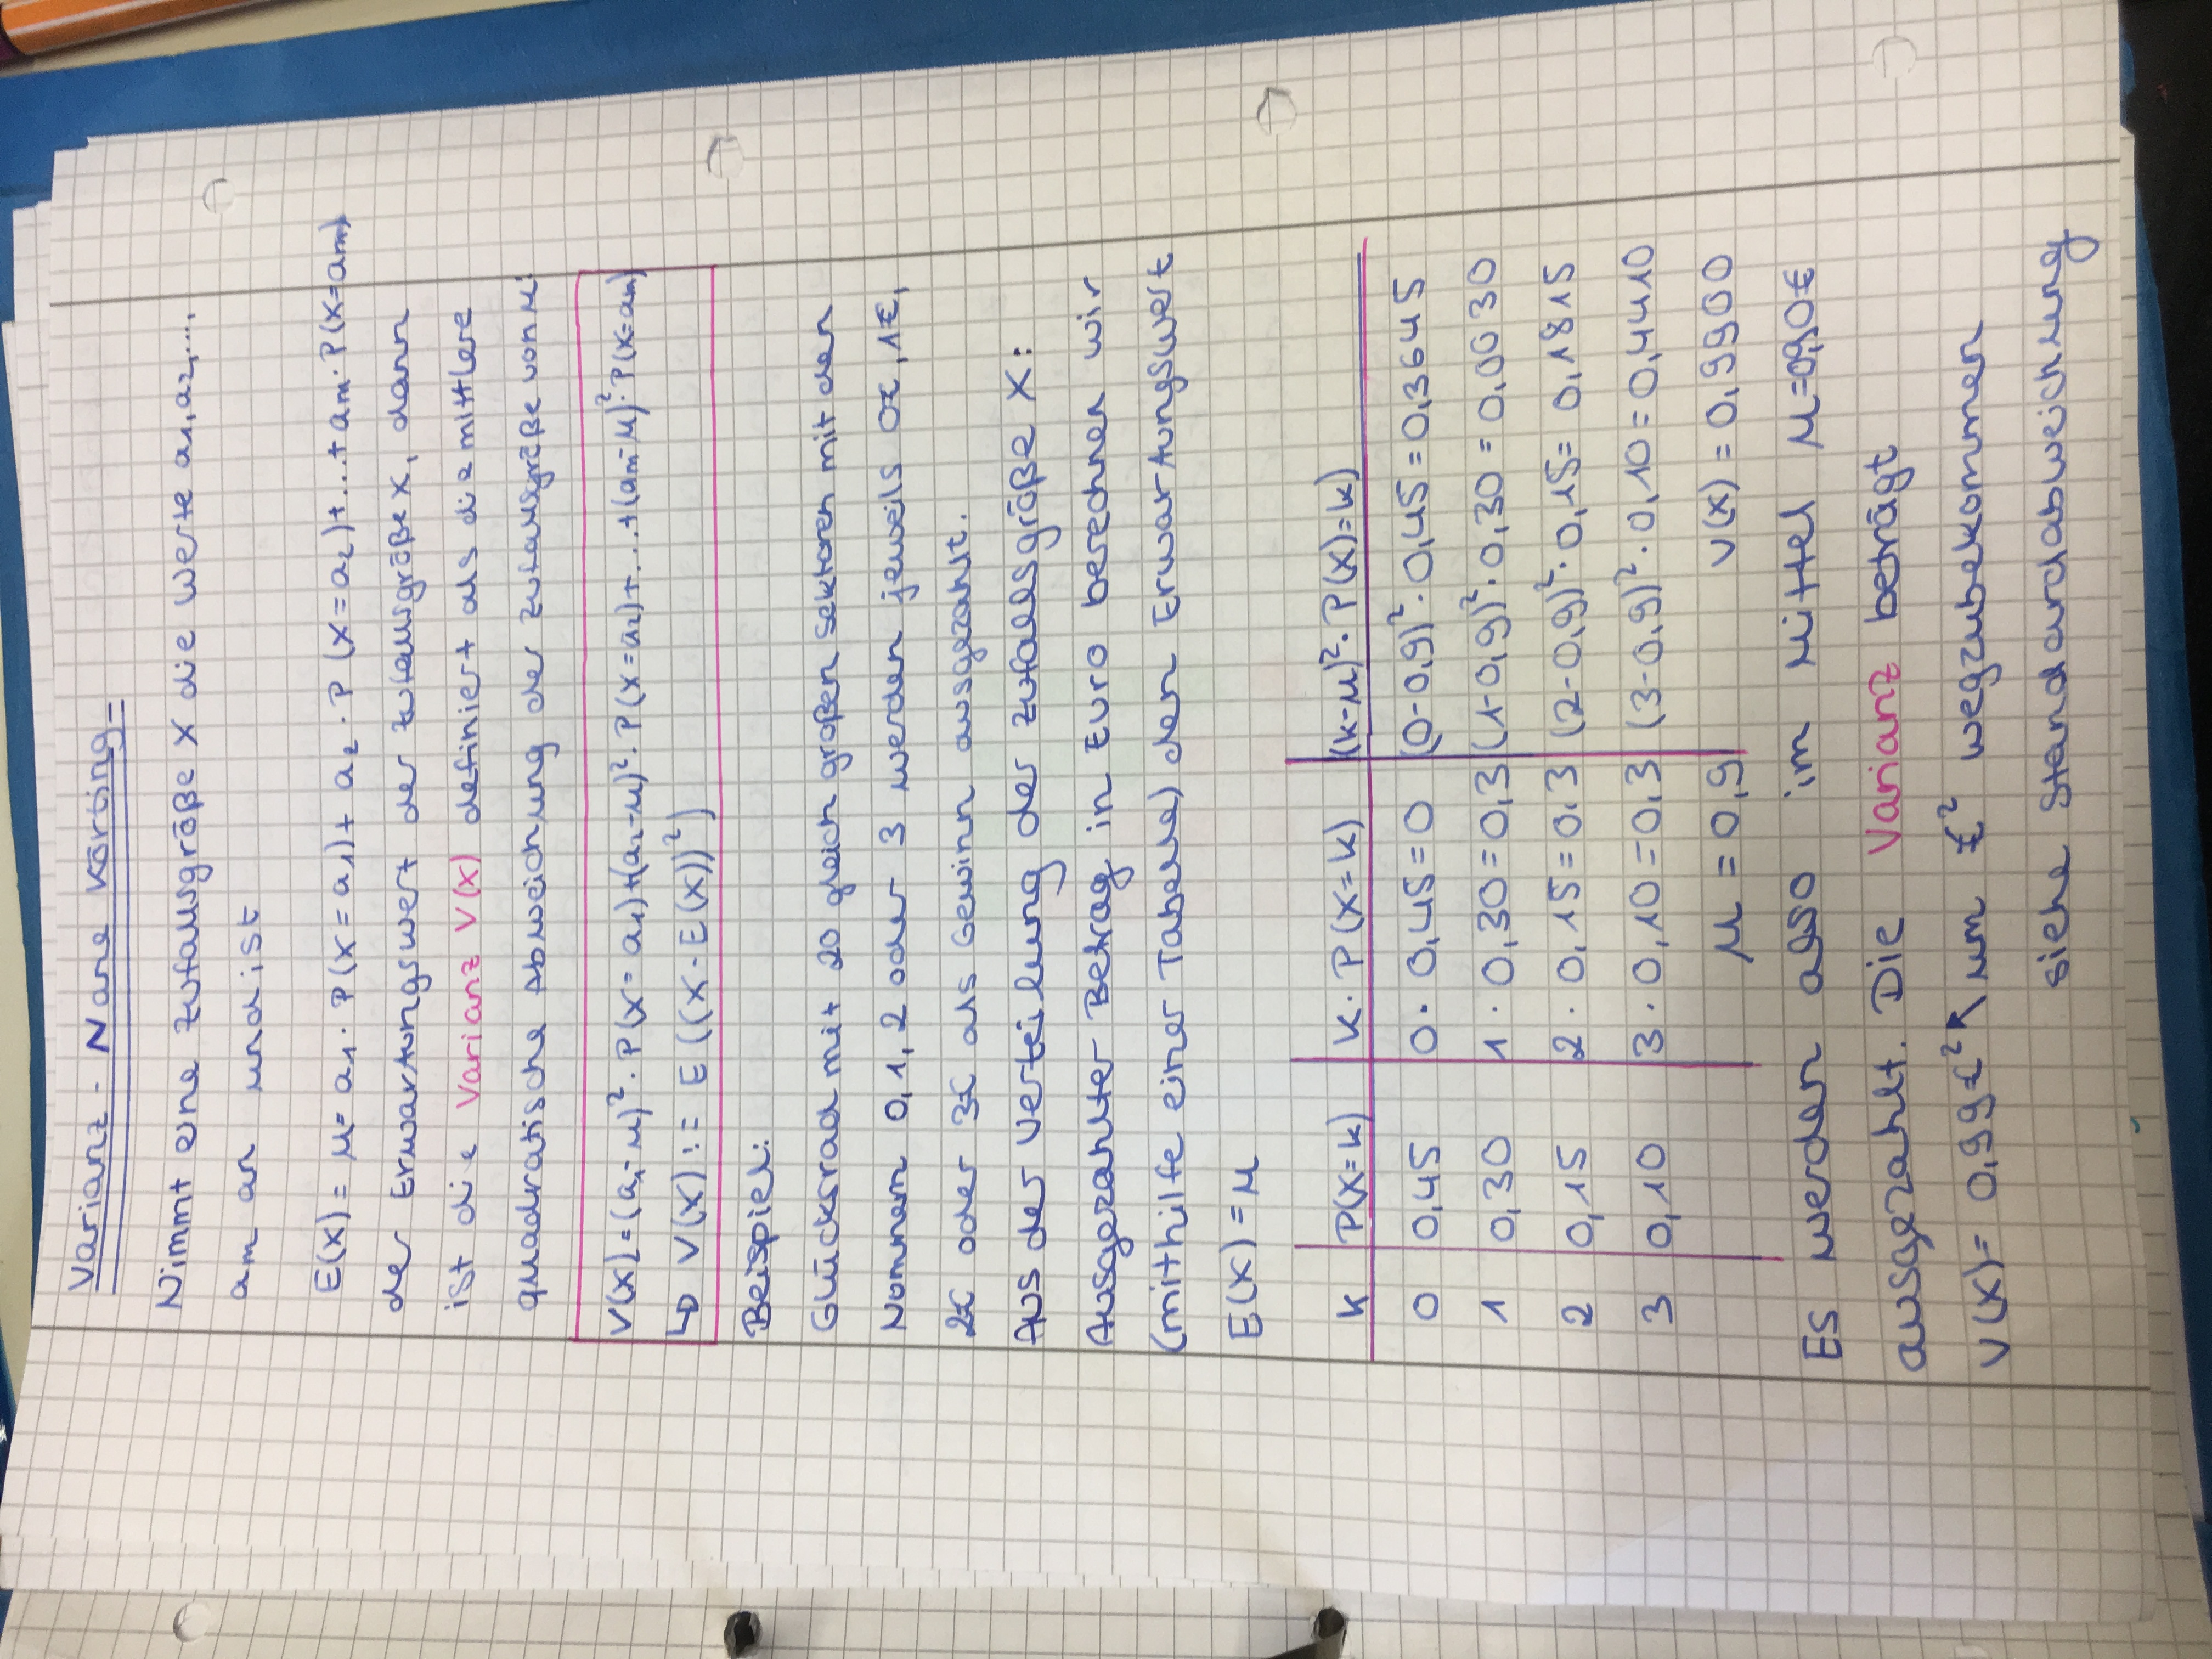 Varianz - Nane Körbing
Nimmt eine Zufallsgröße X die Werte a1, a2, ...,
am an und ist
E(X) = μ = a1 · P(X = a1) + a2 · P(X = a2) + ... + am · P(X = am)
der Erwartungswert der Zufallsgröße X, dann
ist die Varianz V(X) definiert als die mittlere
quadratische Abweichung der Zufallsgröße von μ:
V(X) = (a1 - μ)² · P(X = a1) + (a2 - μ)² · P(X = a2) + ... + (am - μ)² · P(X = am)
↳ V(X) := E((X - E(X))²)
Beispiel:
Glücksrad mit 20 gleich großen Sektoren mit den
Nommern 0, 1, 2 oder 3 werden jeweils 0€, 1€,
2€ oder 3€ als Gewinn ausgezahlt.
Aus der Verteilung der Zufallsgröße X:
Ausgezahlter Betrag in Euro berechnen wir
(mithilfe einer Tabelle) den Erwartungswert
E(X) = μ
k P(X=k) k · P(X=k) (k-μ)² · P(X=k)
0 0,45 0 · 0,45 = 0 (0-0,9)² · 0,45 = 0,3645
1 0,30 1 · 0,30 = 0,3 (1-0,9)² · 0,30 = 0,0030
2 0,15 2 · 0,15 = 0,3 (2-0,9)² · 0,15 = 0,1815
3 0,10 3 · 0,10 = 0,3 (3-0,9)² · 0,10 = 0,4410
μ = 0,9 V(X) = 0,9900
Es werden also im Mittel μ = 0,90€
ausgezahlt. Die Varianz beträgt
V(X) = 0,99€² ↖ um €² wegzubekommen
siehe Standardabweichung